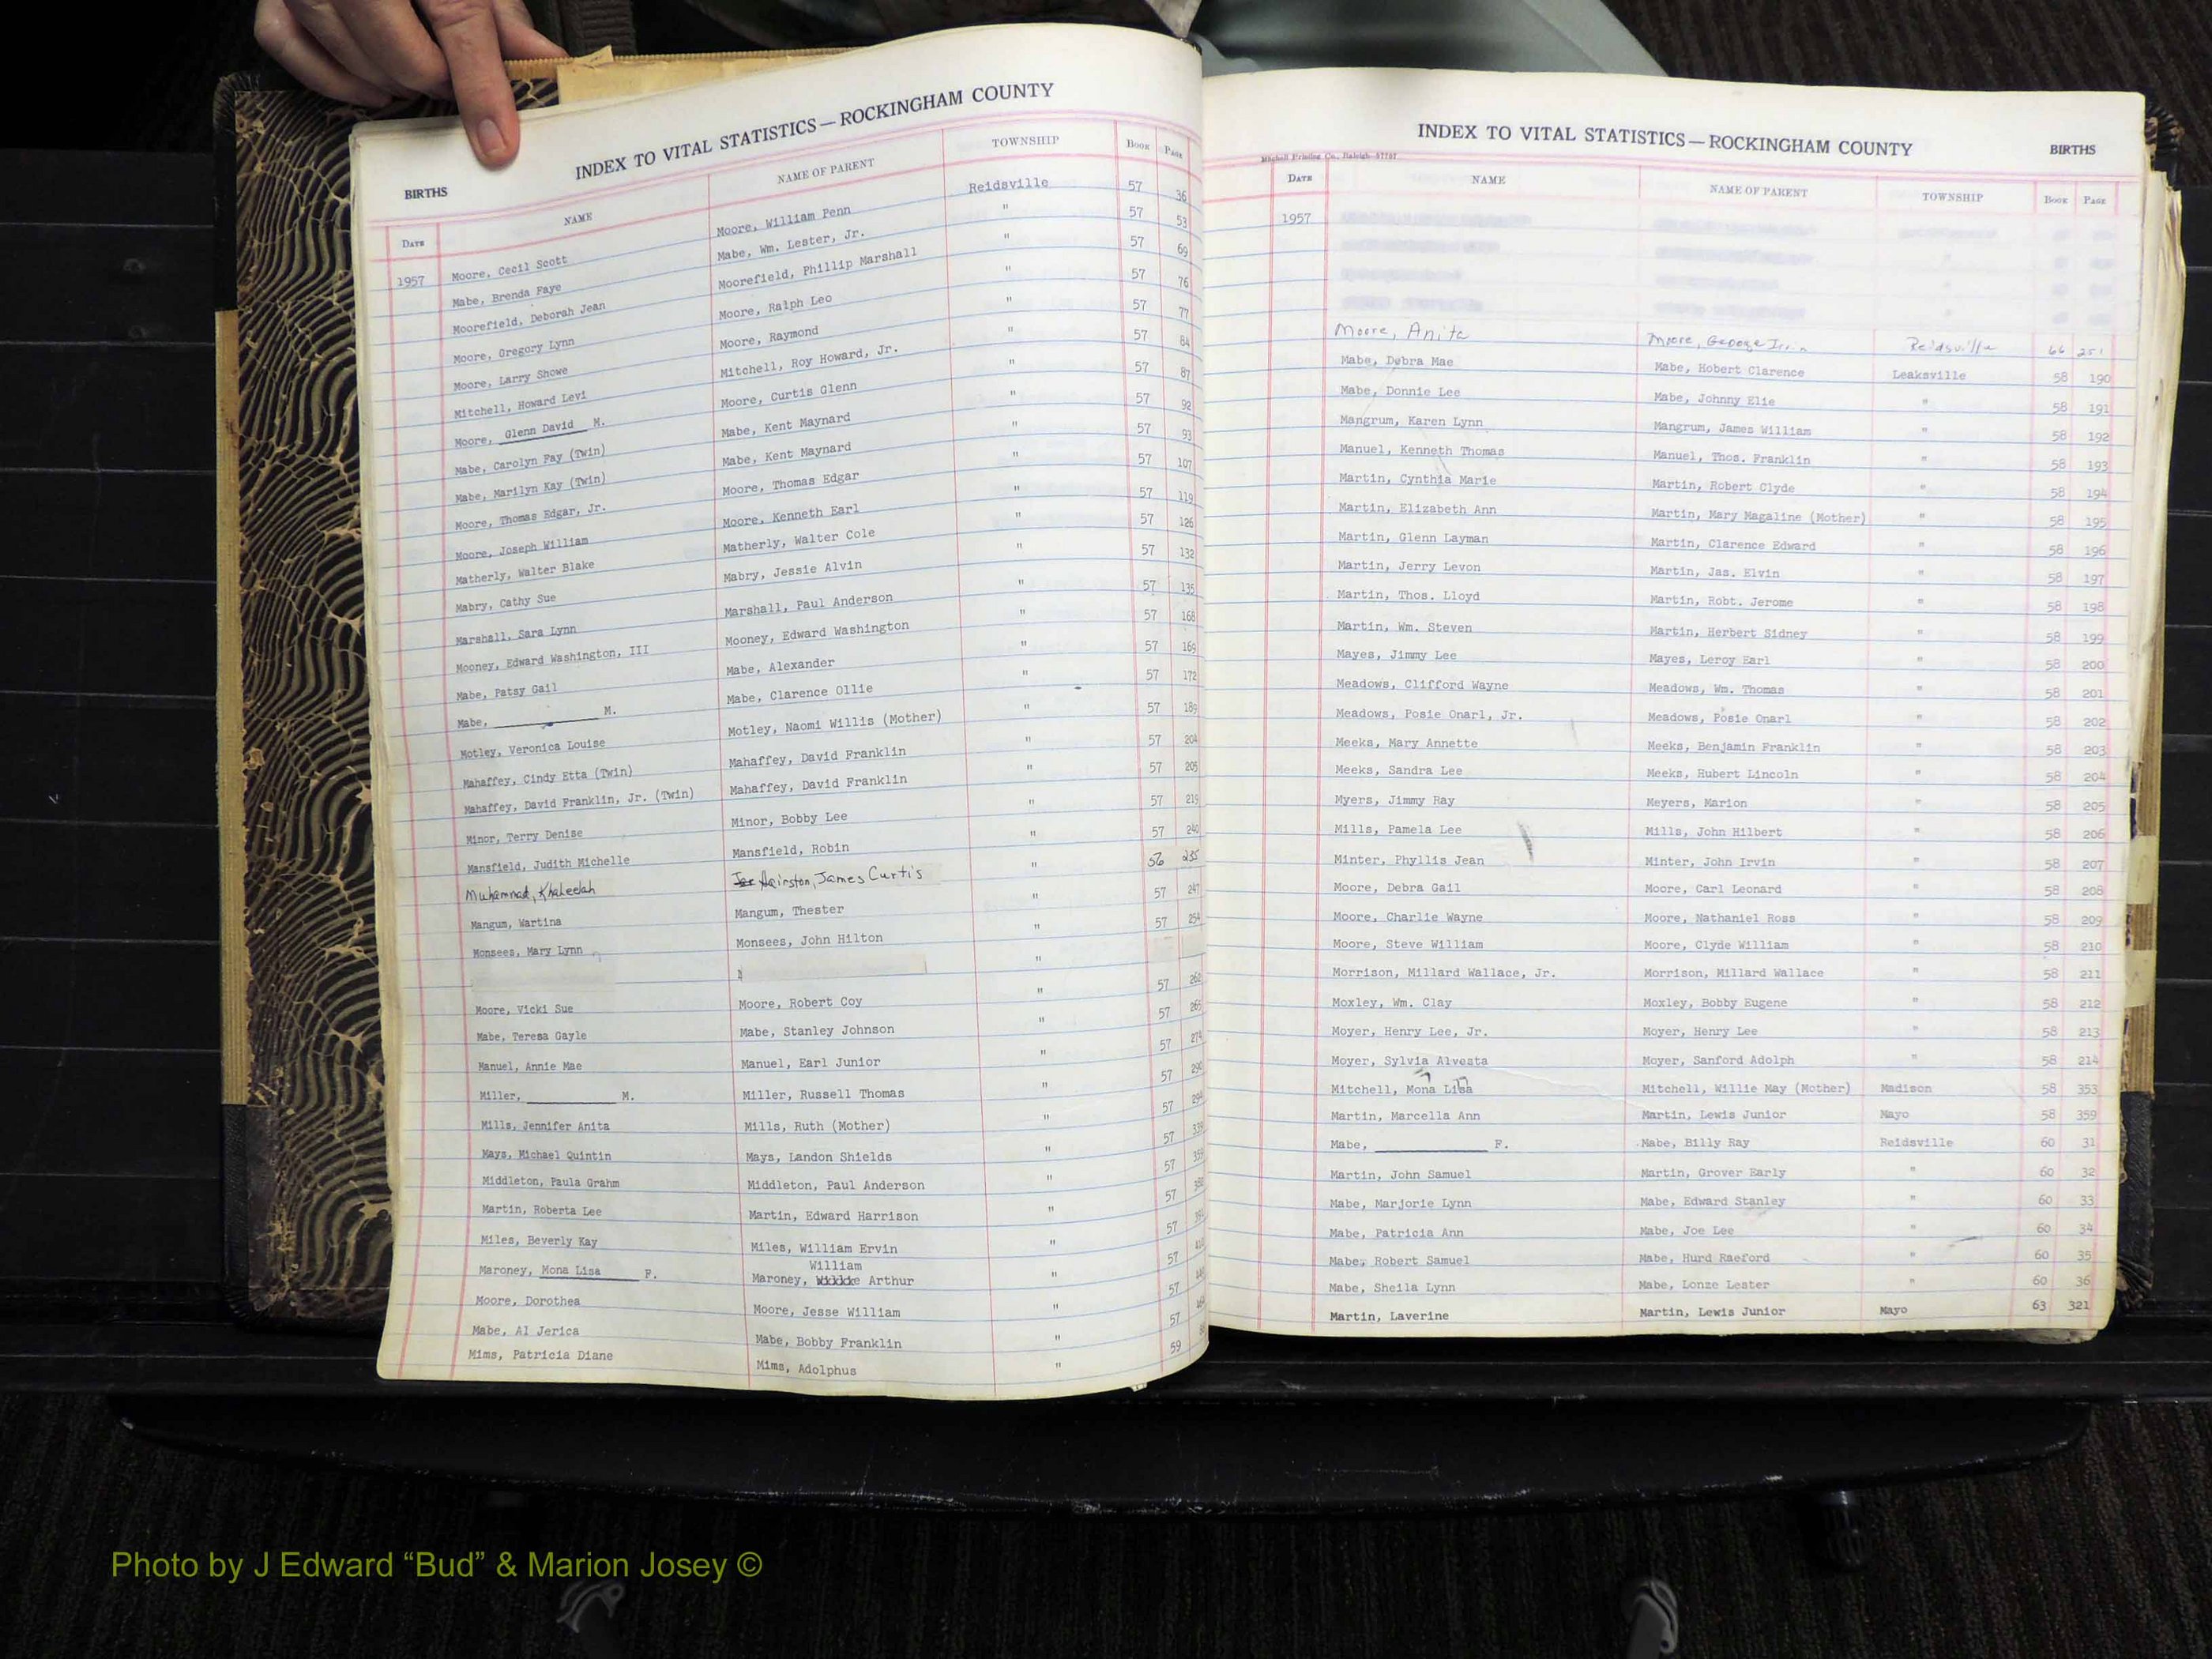 INDEX TO VITAL STATISTICS — ROCKINGHAM COUNTY
BIRTHS
DATE NAME NAME OF PARENT TOWNSHIP BOOK PAGE
1957 Moore, Cecil Scott Moore, William Penn Reidsville 57 36
Mabe, Brenda Faye Mabe, Wm. Lester, Jr. " 57 53
Moorefield, Deborah Jean Moorefield, Phillip Marshall " 57 69
Moore, Gregory Lynn Moore, Ralph Leo " 57 76
Moore, Larry Showe Moore, Raymond " 57 77
Mitchell, Howard Levi Mitchell, Roy Howard, Jr. " 57 84
Moore, Glenn David M. Moore, Curtis Glenn " 57 87
Mabe, Carolyn Fay (Twin) Mabe, Kent Maynard " 57 92
Mabe, Marilyn Kay (Twin) Mabe, Kent Maynard " 57 93
Moore, Thomas Edgar, Jr. Moore, Thomas Edgar " 57 107
Moore, Joseph William Moore, Kenneth Earl " 57 119
Matherly, Walter Blake Matherly, Walter Cole " 57 126
Mabry, Cathy Sue Mabry, Jessie Alvin " 57 132
Marshall, Sara Lynn Marshall, Paul Anderson " 57 135
Mooney, Edward Washington, III Mooney, Edward Washington " 57 168
Mabe, Patsy Gail Mabe, Alexander " 57 169
Mabe, M. Mabe, Clarence Ollie " 57 172
Motley, Veronica Louise Motley, Naomi Willis (Mother) " 57 189
Mahaffey, Cindy Etta (Twin) Mahaffey, David Franklin " 57 204
Mahaffey, David Franklin, Jr. (Twin) Mahaffey, David Franklin " 57 205
Minor, Terry Denise Minor, Bobby Lee " 57 219
Mansfield, Judith Michelle Mansfield, Robin " 57 240
Muhammad, Khaleelah Hairston, James Curtis " 56 235
Mangum, Wartina Mangum, Thester " 57 247
Monsees, Mary Lynn Monsees, John Hilton " 57 254
"
Moore, Vicki Sue Moore, Robert Coy " 57 262
Mabe, Teresa Gayle Mabe, Stanley Johnson " 57 265
Manuel, Annie Mae Manuel, Earl Junior " 57 274
Miller, M. Miller, Russell Thomas " 57 290
Mills, Jennifer Anita Mills, Ruth (Mother) " 57 294
Mays, Michael Quintin Mays, Landon Shields " 57
Middleton, Paula Grahm Middleton, Paul Anderson " 57
Martin, Roberta Lee Martin, Edward Harrison " 57
Miles, Beverly Kay Miles, William Ervin " 57
William
Maroney, Mona Lisa F. Maroney, Arthur " 57
Moore, Dorothea Moore, Jesse William " 57
Mabe, Al Jerica Mabe, Bobby Franklin " 57
Mims, Patricia Diane Mims, Adolphus " 59
INDEX TO VITAL STATISTICS — ROCKINGHAM COUNTY BIRTHS
Mitchell Printing Co., Raleigh
DATE NAME NAME OF PARENT TOWNSHIP BOOK PAGE
1957
Moore, Anita Moore, George Reidsville 66 251
Mabe, Debra Mae Mabe, Hobert Clarence Leaksville 58 190
Mabe, Donnie Lee Mabe, Johnny Elie " 58 191
Mangrum, Karen Lynn Mangrum, James William " 58 192
Manuel, Kenneth Thomas Manuel, Thos. Franklin " 58 193
Martin, Cynthia Marie Martin, Robert Clyde " 58 194
Martin, Elizabeth Ann Martin, Mary Magaline (Mother) " 58 195
Martin, Glenn Layman Martin, Clarence Edward " 58 196
Martin, Jerry Levon Martin, Jas. Elvin " 58 197
Martin, Thos. Lloyd Martin, Robt. Jerome " 58 198
Martin, Wm. Steven Martin, Herbert Sidney " 58 199
Mayes, Jimmy Lee Mayes, Leroy Earl " 58 200
Meadows, Clifford Wayne Meadows, Wm. Thomas " 58 201
Meadows, Posie Onarl, Jr. Meadows, Posie Onarl " 58 202
Meeks, Mary Annette Meeks, Benjamin Franklin " 58 203
Meeks, Sandra Lee Meeks, Rubert Lincoln " 58 204
Myers, Jimmy Ray Meyers, Marion " 58 205
Mills, Pamela Lee Mills, John Hilbert " 58 206
Minter, Phyllis Jean Minter, John Irvin " 58 207
Moore, Debra Gail Moore, Carl Leonard " 58 208
Moore, Charlie Wayne Moore, Nathaniel Ross " 58 209
Moore, Steve William Moore, Clyde William " 58 210
Morrison, Millard Wallace, Jr. Morrison, Millard Wallace " 58 211
Moxley, Wm. Clay Moxley, Bobby Eugene " 58 212
Moyer, Henry Lee, Jr. Moyer, Henry Lee " 58 213
Moyer, Sylvia Alvesta Moyer, Sanford Adolph " 58 214
Mitchell, Mona Lisa Mitchell, Willie May (Mother) Madison 58 353
Martin, Marcella Ann Martin, Lewis Junior Mayo 58 359
Mabe, F. Mabe, Billy Ray Reidsville 60 31
Martin, John Samuel Martin, Grover Early " 60 32
Mabe, Marjorie Lynn Mabe, Edward Stanley " 60 33
Mabe, Patricia Ann Mabe, Joe Lee " 60 34
Mabe, Robert Samuel Mabe, Hurd Raeford " 60 35
Mabe, Sheila Lynn Mabe, Lonze Lester " 60 36
Martin, Laverine Martin, Lewis Junior Mayo 63 321
Photo by J Edward “Bud” & Marion Josey ©